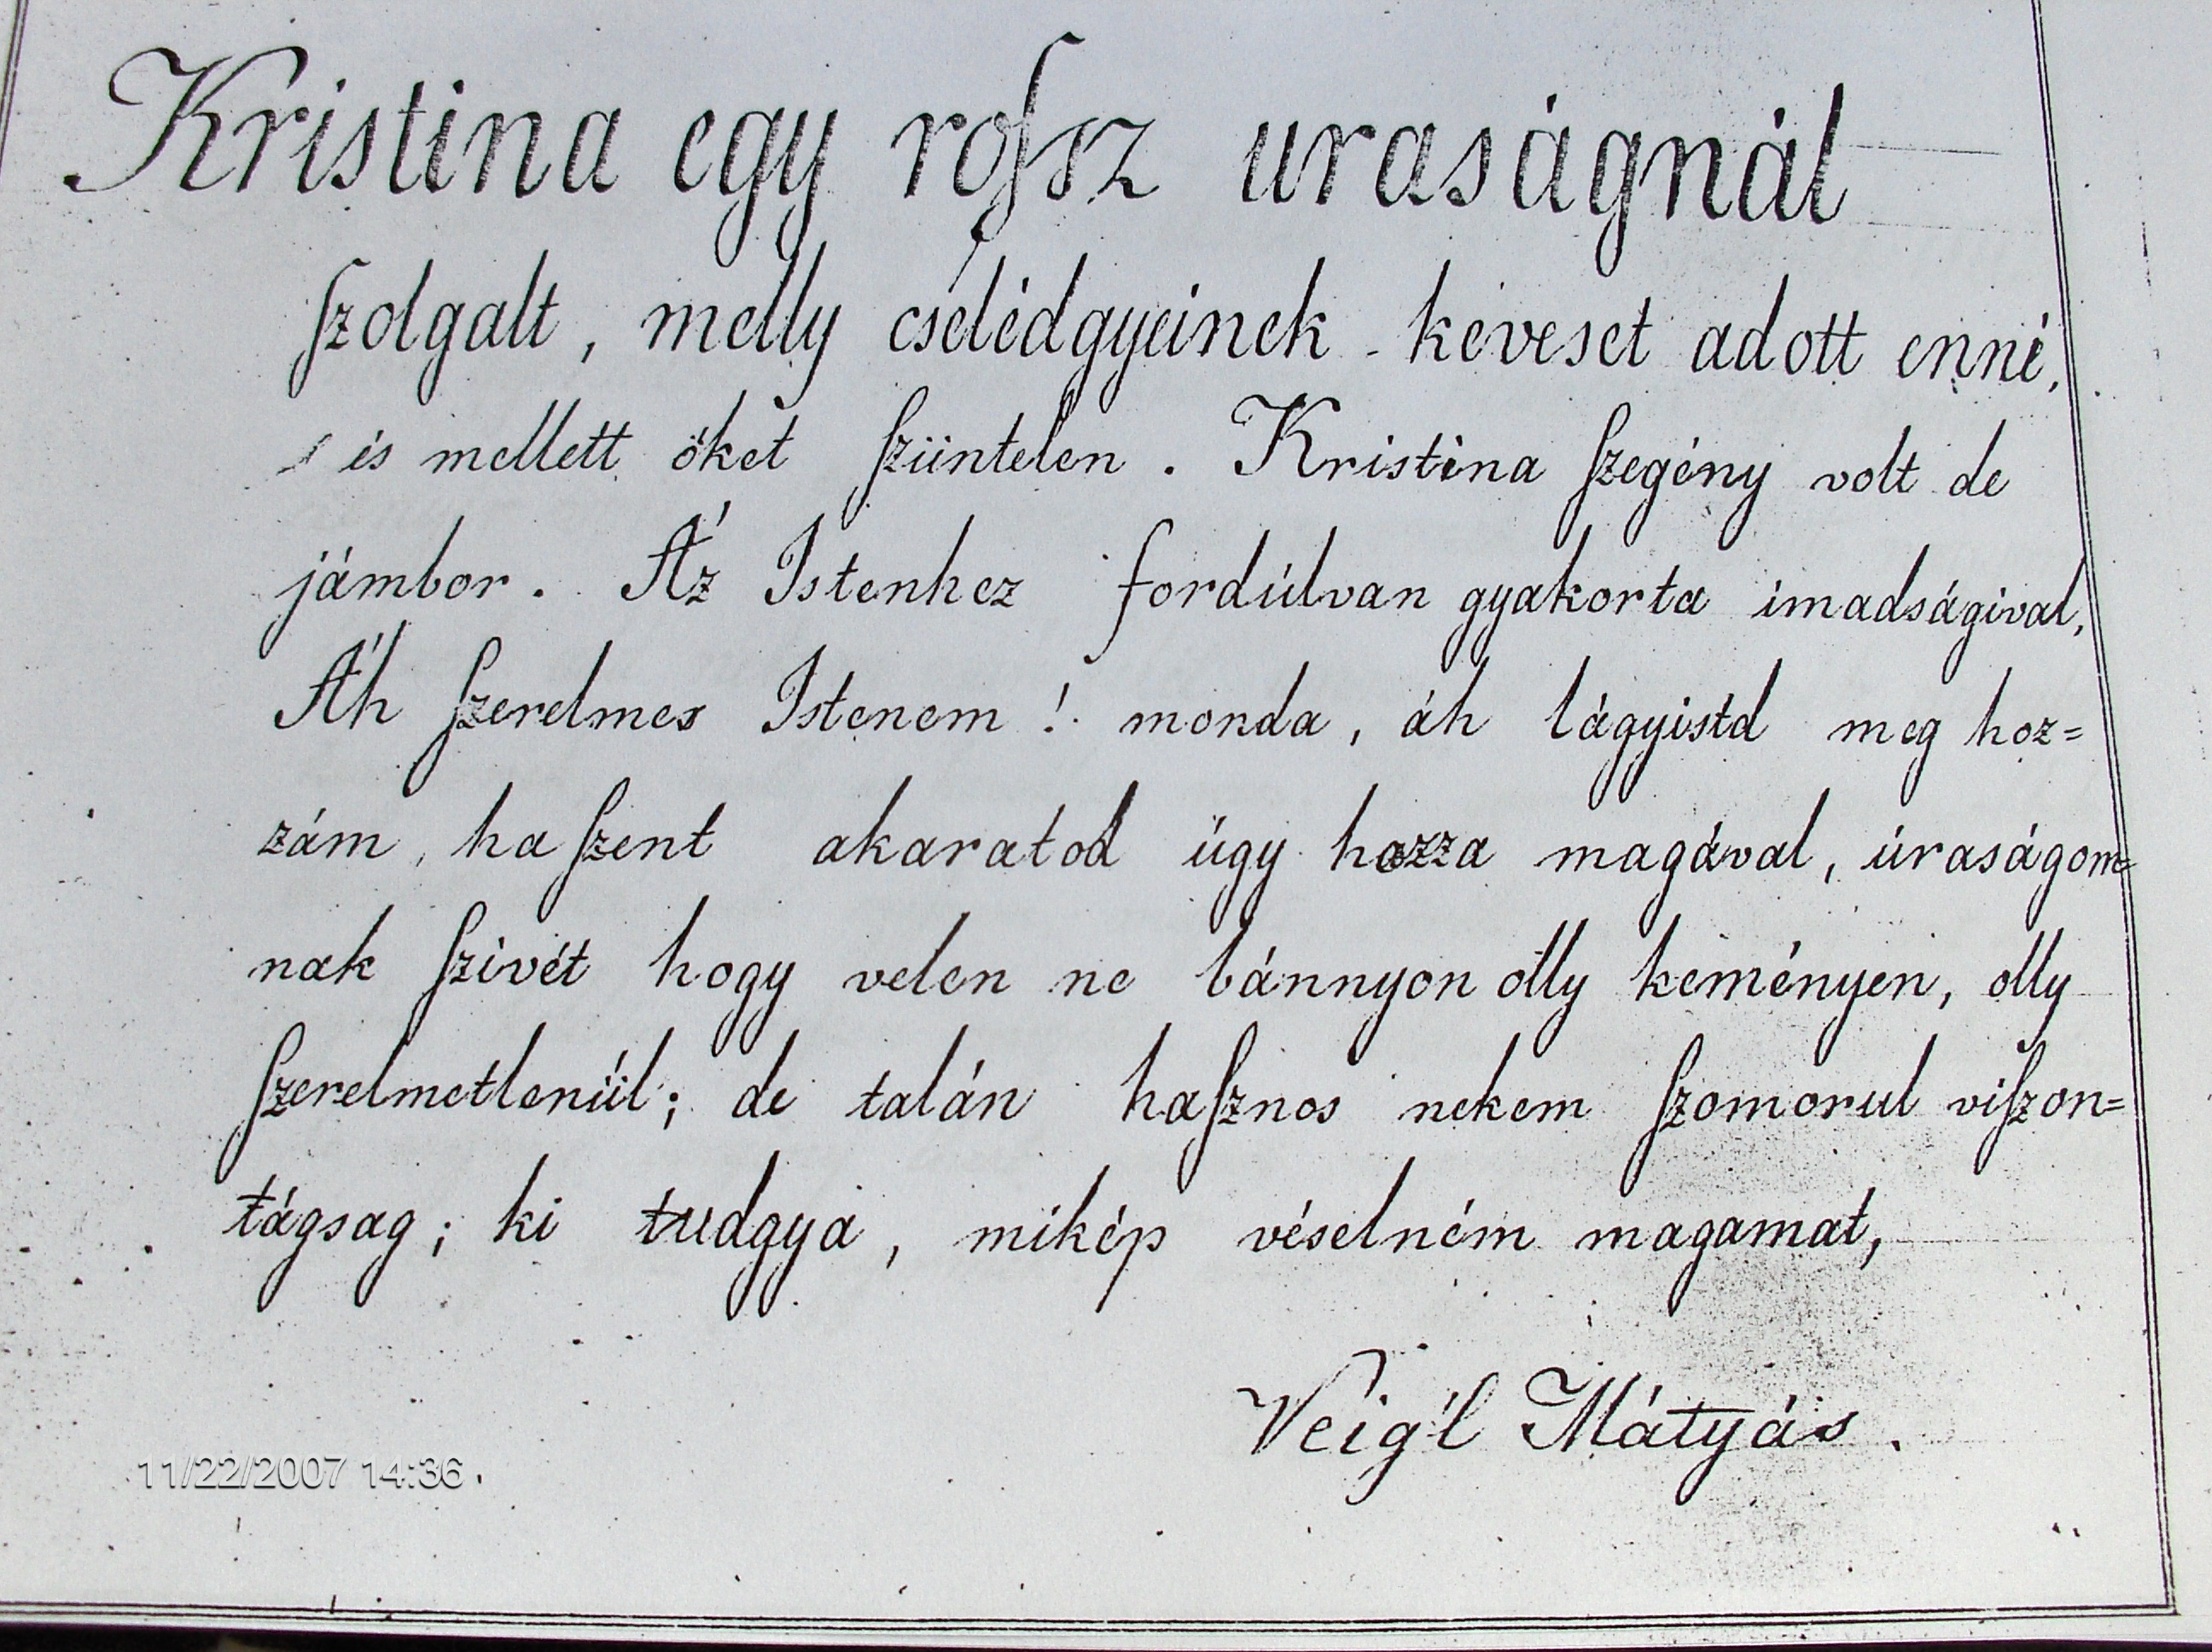 Kristina egy roſsz uraságnál
ſzolgalt, melly cselédgyeinek keveset adott enni,
s is mellett öket ſzüntelen. Kristina ſzegény volt de
jámbor. Áz Istenhez fordúlvan gyakorta imadságival,
Áh ſzerelmes Istenem! monda, áh lágyistd meg hoz=
zám, ha ſzent akaratod úgy hozza magával, úraságom=
nak ſzivét hogy velen ne bánnyon olly keményen, olly
ſzerelmetlenűl; de talán haſznos nekem ſzomorul viſzon=
tágsag; ki tudgya, mikép véselném magamat,
Veig'l Mátyás.
11/22/2007 14:36